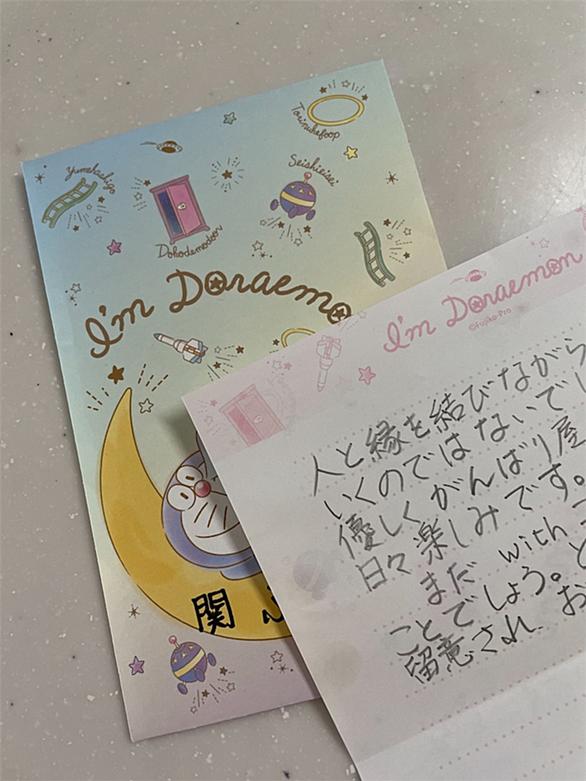 Torinukefoop
Yumehashigo
Seishinisei
Dokodemodoor
I'm Doraemo
I'm Doraemon
©Fujiko-Pro
人と縁を結びながら
いくのではないでし
優しくがんばり屋
日々楽しみです。
まだ with
ことでしょう。と
留意され お
関